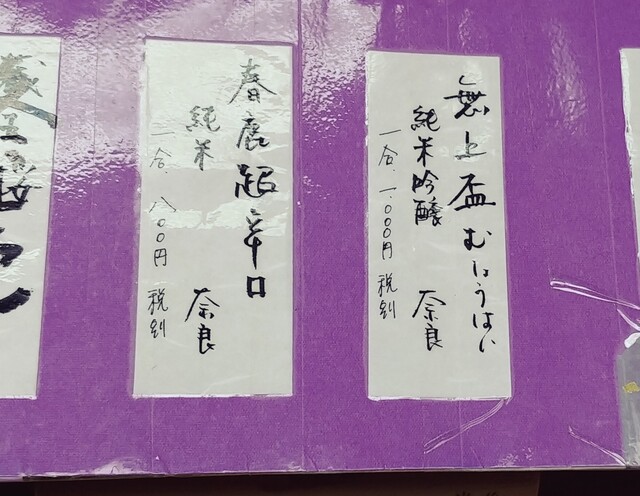 無上盃 むじょうはい
純米吟醸 奈良
一合 一、〇〇〇円 税別
春鹿超辛口
純米 奈良
一合 八〇〇円 税別